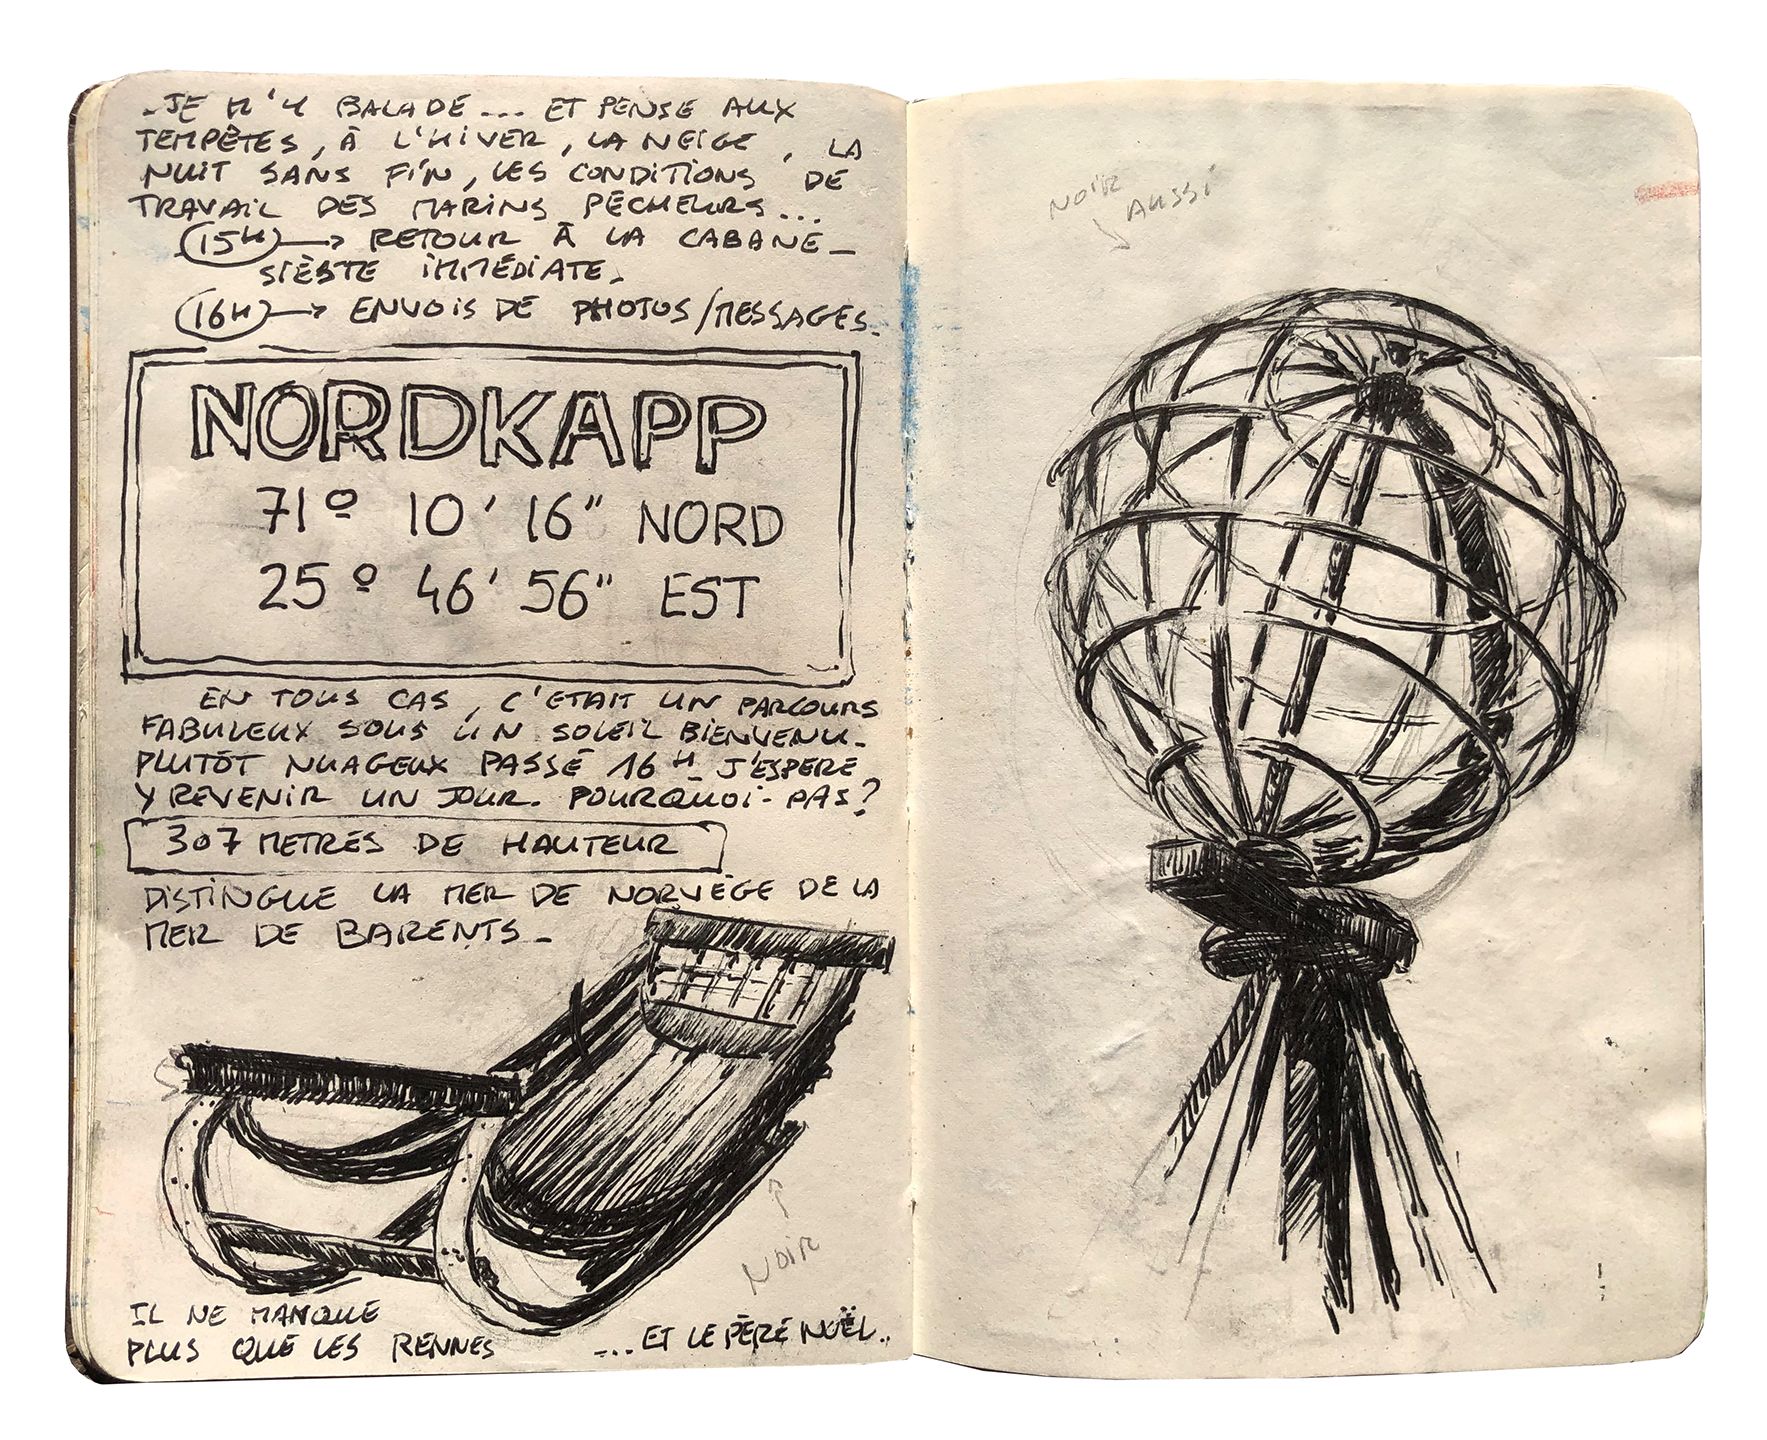 -JE M'Y BALADE... ET PENSE AUX
TEMPÊTES, À L'HIVER, LA NEIGE, LA
NUIT SANS FIN, LES CONDITIONS DE
TRAVAIL DES MARINS PÊCHEURS...
15H → RETOUR À LA CABANE -
SIÈSTE IMMÉDIATE.
16H → ENVOIS DE PHOTOS/MESSAGES.
NORDKAPP
71º 10' 16" NORD
25º 46' 56" EST
EN TOUS CAS, C'ETAIT UN PARCOURS
FABULEUX SOUS UN SOLEIL BIENVENU.
PLUTÔT NUAGEUX PASSÉ 16H- J'ESPERE
Y REVENIR UN JOUR. POURQUOI-PAS?
307 METRES DE HAUTEUR
DISTINGUE LA MER DE NORVÈGE DE LA
MER DE BARENTS-
NOIR
IL NE MANQUE
PLUS QUE LES RENNES ...ET LE PÈRE NOËL..
NOIR
AUSSI